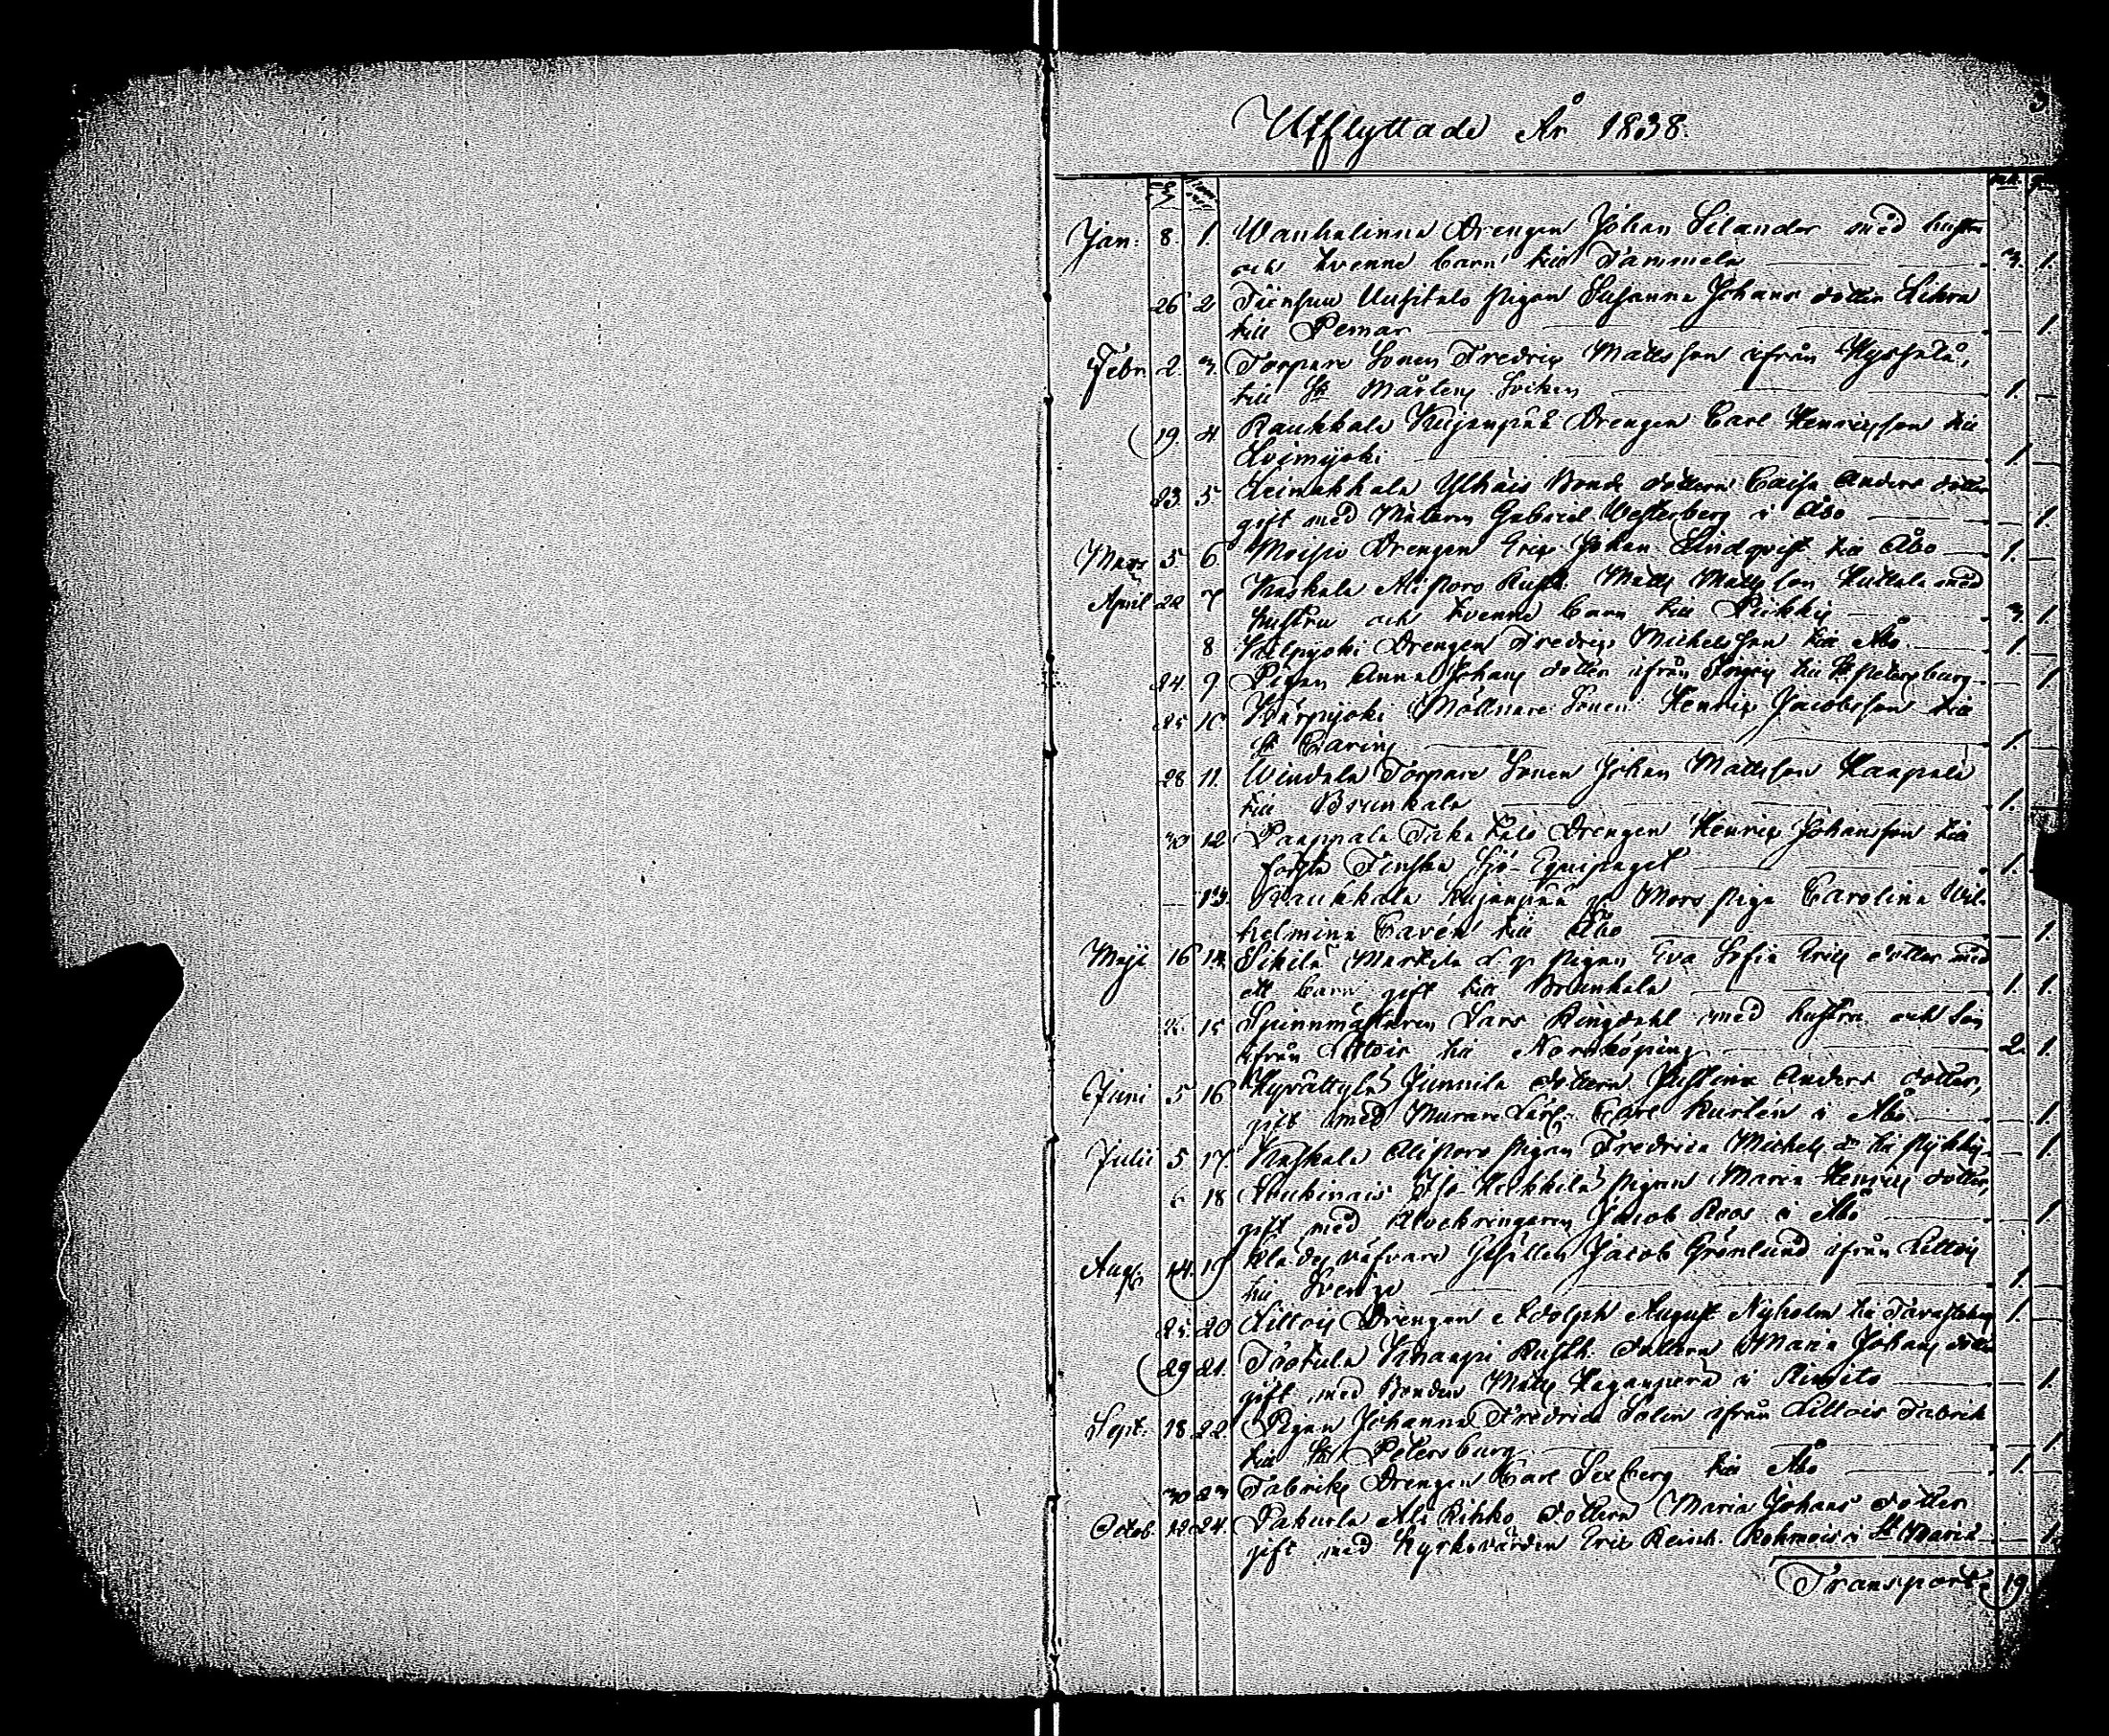 3
Utflyttade År 1838.
Jan: 8. 1. Wanhalinna Drengen Johan Silander med hustru
och tvenne barn till Tammela 3. 1.
26 2 Tiensuu Uusitalo Pigan Susanna Johans dotter
till Pemar 1.
Febr. 2. 3. Torpare Sonen Fredric Mattsson ifrån
till St Mårtens Socken 1.
19. 4. Raukkala Kujanpää Drengen Carl Henricsson till
Loimijoki 1.
23. 5 Leinakkala Ylhäis Bonde dottern Caisa Anders dotter
gift med Målaren Gabriel Westerberg i Åbo 1.
Mars 5 6 Moisio Drengen Eric Johan Lindqvist till Åbo 1.
April 22 7 Kaskala Alistaro Rusth. Matts Mattsson Huttala med
hustru och tvenne barn till Piikkis 3. 1
8 Drengen Fredric Michelsson till Åbo 1
24. 9 Pigan Anna Johans dotter ifrån till St Petersburg 1
25 10 Järpijoki Möllnare Sonen Henric Jacobsson till
St Carins 1.
28 11. Windala Torpare Sonen Johan Mattsson Haapala
till Brunkala 1.
30 12 Paappala Taka Drengen Henric Johansson till
första Finska Sjö-Equipaget 1.
13. Raukkala Kujanpää Mors piga Carolina Wil-
helmina Carén till Åbo 1.
Maji 16 14. Sikilä Markula d. p. pigan Eva Sofia Erics dotter med
ett barn gift till Brunkala 1. 1.
15 Spinnmästaren Lars Ringdahl med hustru och son
ifrån Littois till Norrköping 2. 1.
Juni 5 16 Hyvättylä Junnila dottern Justina Anders dotter,
gift med Murare Lärl. Carl Kurlén i Åbo 1.
Julii 5 17. Kaskala Alistaro Pigan Fredrica Michels dr till Pijkkis 1.
6 18 Iso-Heikkilä pigan Maria Henrics dotter,
gift med Klockringaren Jacob Roos i Åbo 1.
Aug. 14. 19 Klädes väfvare Gesällen Jacob Grönlund ifrån Littois
till Sverige 1.
25. 20 Littois Drengen Adolph August Nyholm till Tavastehus 1.
29 21. Tootula Knaapi Rusth. dottern Maria Johans dotter
gift med Bonden Matts Haganperä i Rimito 1.
Sept. 18. 22 Pigan Johanna Fredrica Solin ifrån Littois Fabrik
till St Petersburg 1.
30 23 Fabriks Drengen Carl Sexberg till Åbo 1.
Octob. 12 24. Pakurla Ali Kihko dottern Maria Johans dotter
gift med Kyrkovärden Eric i St Marie 1.
Transport 19